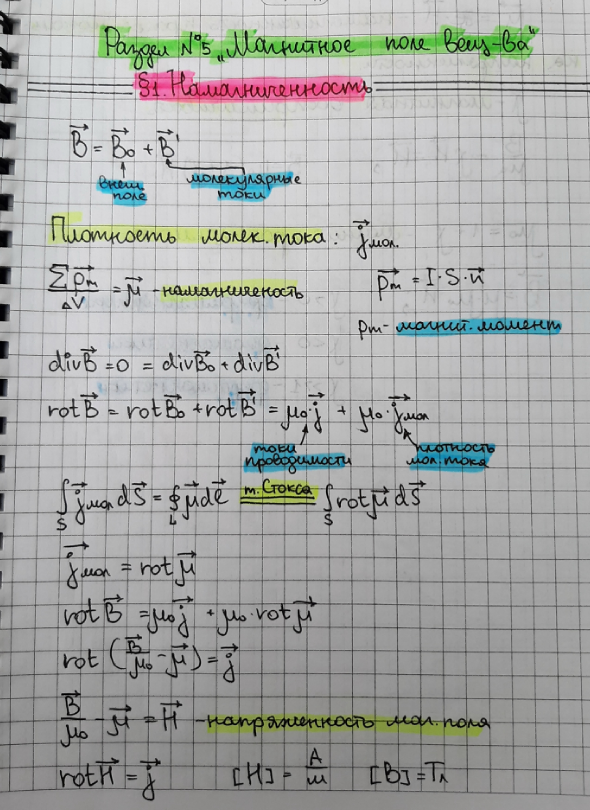 Раздел №5 „Магнитное поле вещ-ва"
§1. Намагниченность
B⃗ = B⃗₀ + B⃗'
внеш. поле
молекулярные токи
Плотность молек. тока: j⃗мол.
∑p⃗m / ΔV = μ⃗ - намагниченость
p⃗m = I·S·n⃗
pm - магнит. момент
divB⃗ = 0 = divB⃗₀ + divB⃗'
rotB⃗ = rotB⃗₀ + rotB⃗' = μ₀·j⃗ + μ₀·j⃗мол
токи проводимости
плотность мол. тока
∫S j⃗мол dS⃗ = ∮L μ⃗dℓ⃗ т. Стокса ∫S rotμ⃗ dS⃗
j⃗мол = rotμ⃗
rotB⃗ = μ₀j⃗ + μ₀·rotμ⃗
rot (B⃗/μ₀ - μ⃗) = j⃗
B⃗/μ₀ - μ⃗ = H⃗ - напряженность маг. поля
rotH⃗ = j⃗ [H] = А/м [B] = Тл